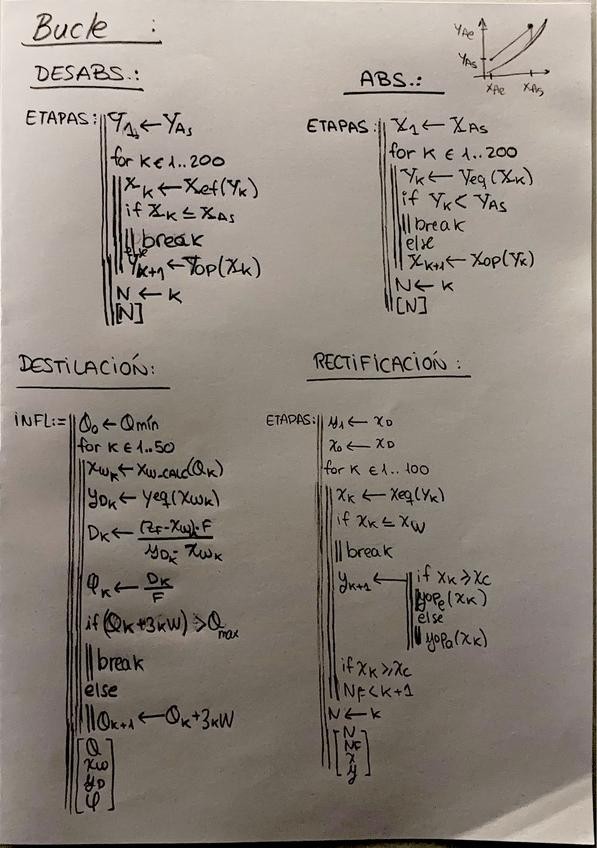 Bucle :
Y_Ae
Y_As
X_Ae X_As
DESABS.:
ETAPAS: Y_1 ← Y_As
for K ∈ 1..200
X_K ← X_ef(Y_K)
if X_K ≤ X_As
break
else
Y_K+1 ← Y_op(X_K)
N ← K
[N]
ABS.:
ETAPAS: X_1 ← X_As
for K ∈ 1..200
Y_K ← Y_eq(X_K)
if Y_K < Y_As
break
else
X_K+1 ← X_op(Y_K)
N ← K
[N]
DESTILACIÓN:
INFL:= Q_0 ← Qmín
for K ∈ 1..50
x_WK ← x_W.CALC(Q_K)
y_DK ← yeq(x_WK)
D_K ← (z_F - x_WK)·F / y_DK - x_WK
φ_K ← D_K / F
if (Q_K + 3kW) > Q_max
break
else
Q_K+1 ← Q_K + 3kW
[Q
x_W
y_D
φ]
RECTIFICACIÓN:
ETAPAS: y_1 ← x_D
x_0 ← x_D
for K ∈ 1..100
x_K ← x_eq(y_K)
if x_K ≤ x_W
break
y_K+1 ← if x_K ⩾ x_C
y_ope(x_K)
else
y_opa(x_K)
if x_K ⩾ x_C
N_F < K+1
N ← K
[N
NF
x
y]